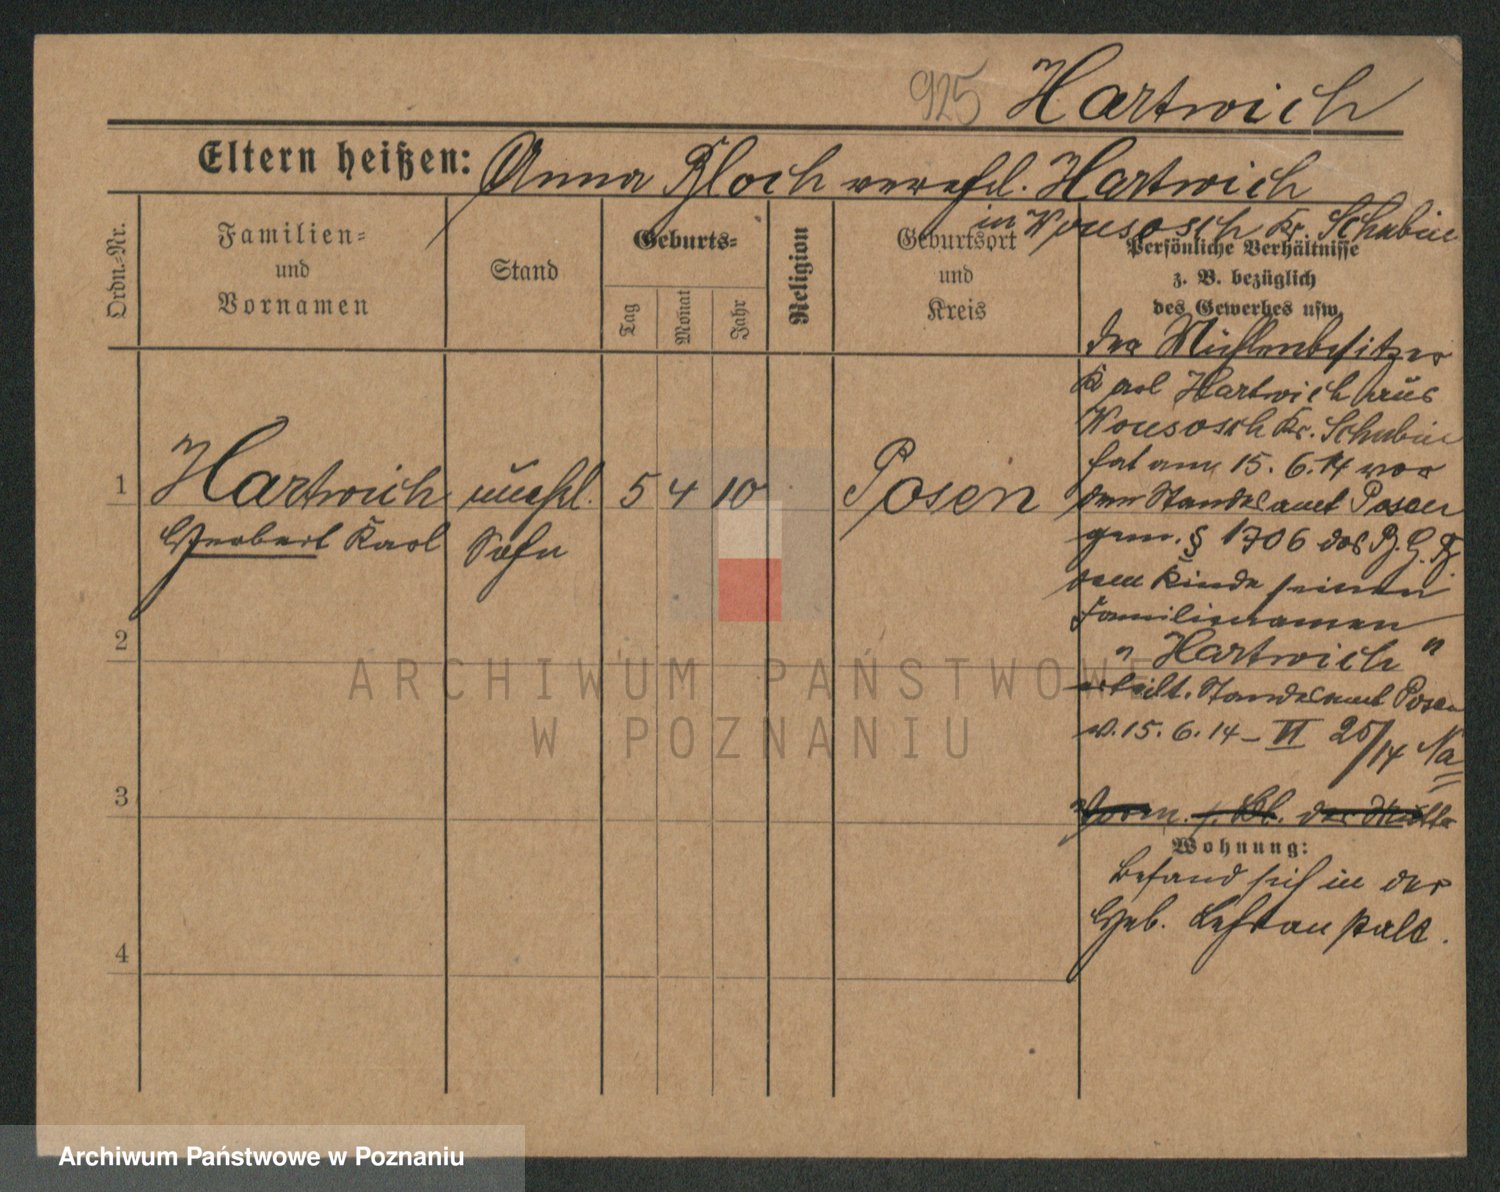 925 Hartwich
Eltern heißen: Anna Kloch verehel. Hartwich
in Wonsosch Kr. Schubin
Ordn.-Nr.
Familien-
und
Vornamen
Stand
Geburts-
Tag
Monat
Jahr
Religion
Geburtsort
und
Kreis
Persönliche Verhältnisse
z. B. bezüglich
des Gewerbes usw.
1
Hartwich
Herbert Karl
unehel.
Sohn
5 4 10
Posen
Der Mühlenbesitzer
Karl Hartwich aus
Wonsosch Kr. Schubin
hat am 15. 6. 14 vor
dem Standesamt Posen
gem. § 1706 des B. G. B.
dem Kinde seinen
Familiennamen
"Hartwich"
erteilt. Standesamt Posen
v. 15. 6. 14 – VI 25/14 Na
Vorm. s. Bl. der Mutter
Wohnung:
Befand sich in der
Geb. Lehranstalt.
2
3
4
ARCHIWUM PAŃSTWOWE
W POZNANIU
Archiwum Państwowe w Poznaniu